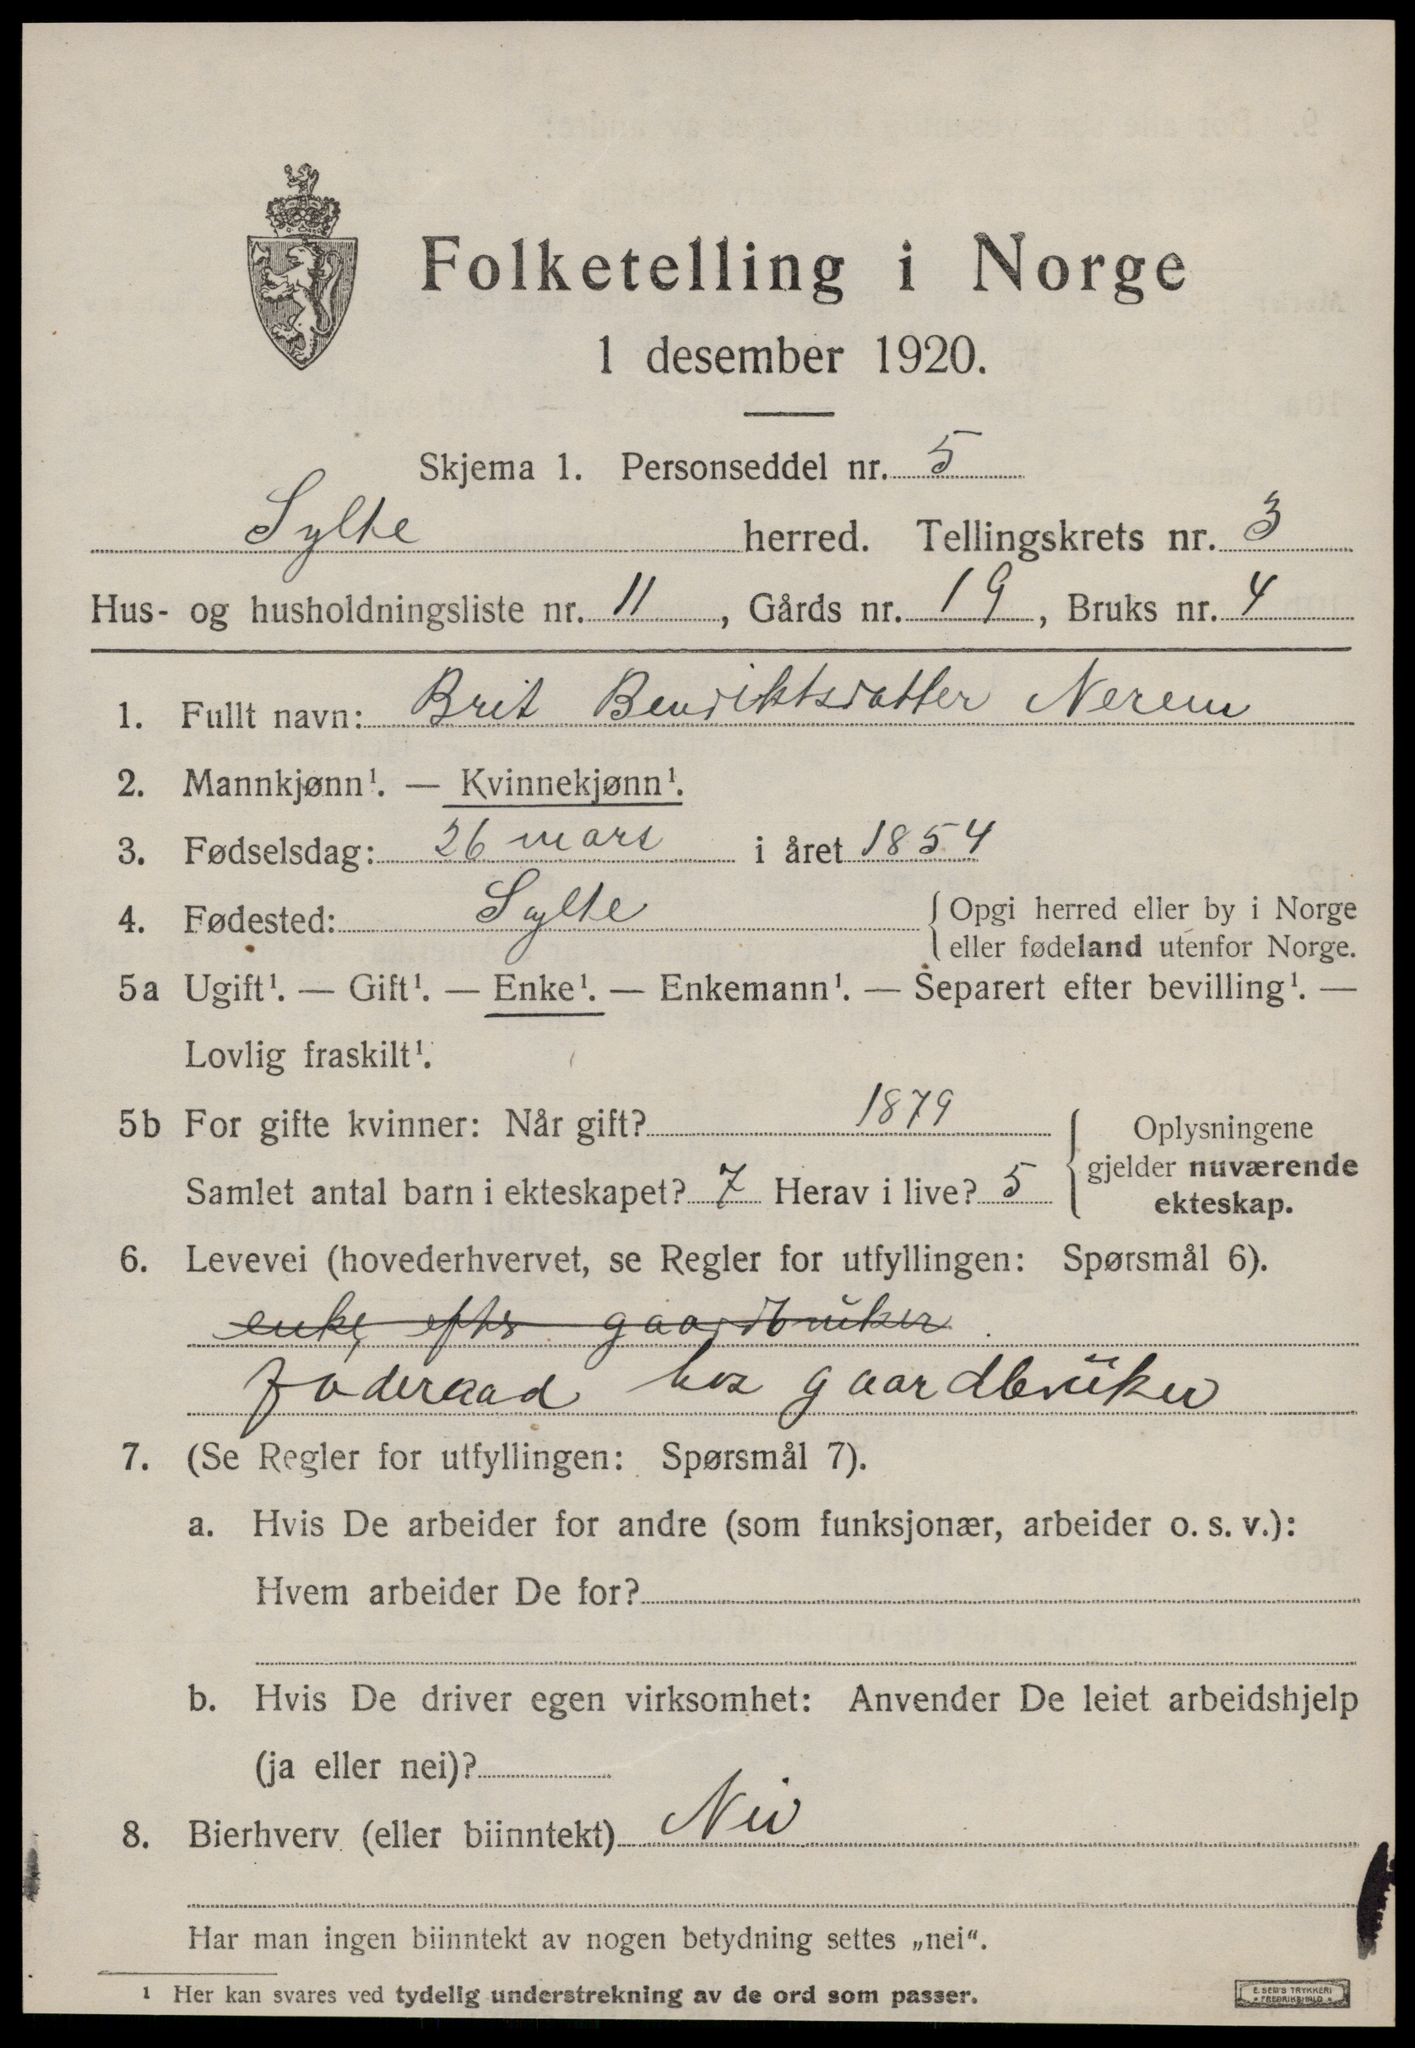 Folketelling i Norge
1 desember 1920.
Skjema 1. Personseddel nr. 5
Sylte herred. Tellingskrets nr. 3
Hus- og husholdningsliste nr. 11, Gårds nr. 19, Bruks nr. 4
1. Fullt navn: Brit Bendiktsdatter Nerem
2. Mannkjønn¹. — Kvinnekjønn¹.
3. Fødselsdag: 26 mars i året 1854
4. Fødested: Sylte { Opgi herred eller by i Norge
eller fødeland utenfor Norge.
5a Ugift¹. — Gift¹. — Enke¹. — Enkemann¹. — Separert efter bevilling¹. —
Lovlig fraskilt¹.
5b For gifte kvinner: Når gift? 1879
Samlet antal barn i ekteskapet? 7 Herav i live? 5
{ Oplysningene
gjelder nuværende
ekteskap.
6. Levevei (hovederhvervet, se Regler for utfyllingen: Spørsmål 6).
enke efter gaardbruker
føderaad hos gaardbruker
7. (Se Regler for utfyllingen: Spørsmål 7).
a. Hvis De arbeider for andre (som funksjonær, arbeider o. s. v.):
Hvem arbeider De for?
b. Hvis De driver egen virksomhet: Anvender De leiet arbeidshjelp
(ja eller nei)?
8. Bierhverv (eller biinntekt) Nei
Har man ingen biinntekt av nogen betydning settes „nei“.
¹ Her kan svares ved tydelig understrekning av de ord som passer.
E. SEM'S TRYKKERI
FREDRIKSHALD